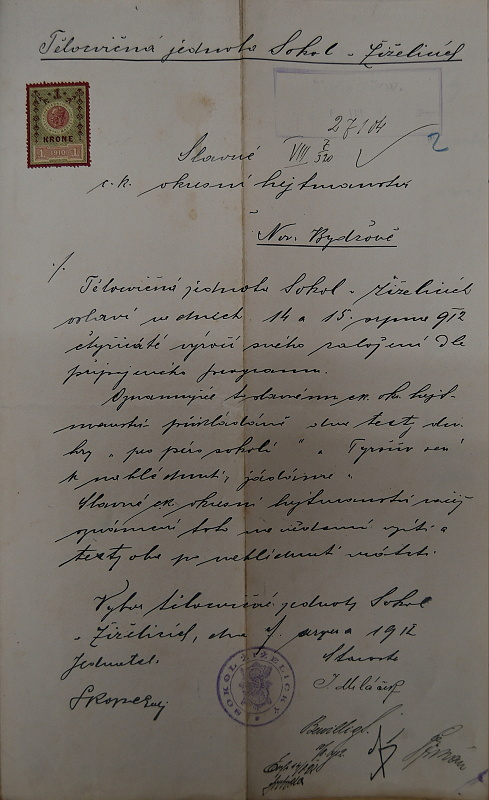 Tělocvičná jednota Sokol v Žiželicích
1
KRONE
1 1910 1
27104
VIII 7/320
2
Slavné
c.k. okresní hejtmanství
v Nov. Bydžově
./.
Tělocvičná jednota Sokol v Žiželicích
oslaví ve dnech 14 a 15. srpna 912
čtyřicáté výročí svého založení dle
připojeného programu.
Oznamujíce to slavnému ck. okr. hejt-
manství přikládáme dva texty, div.
hry „ " a „ Tyršův sen"
k nahlédnutí, žádáme:
Slavné ck. okresní hejtmanství račiž
oznámení toto na vědomí vzíti a
texty oba po nahlédnutí vrátiti.
Výbor tělocvičné jednoty Sokol
v Žiželicích, dne srpna 1912
Jednatel: Starosta
SOKOL ŽIŽELICKÝ